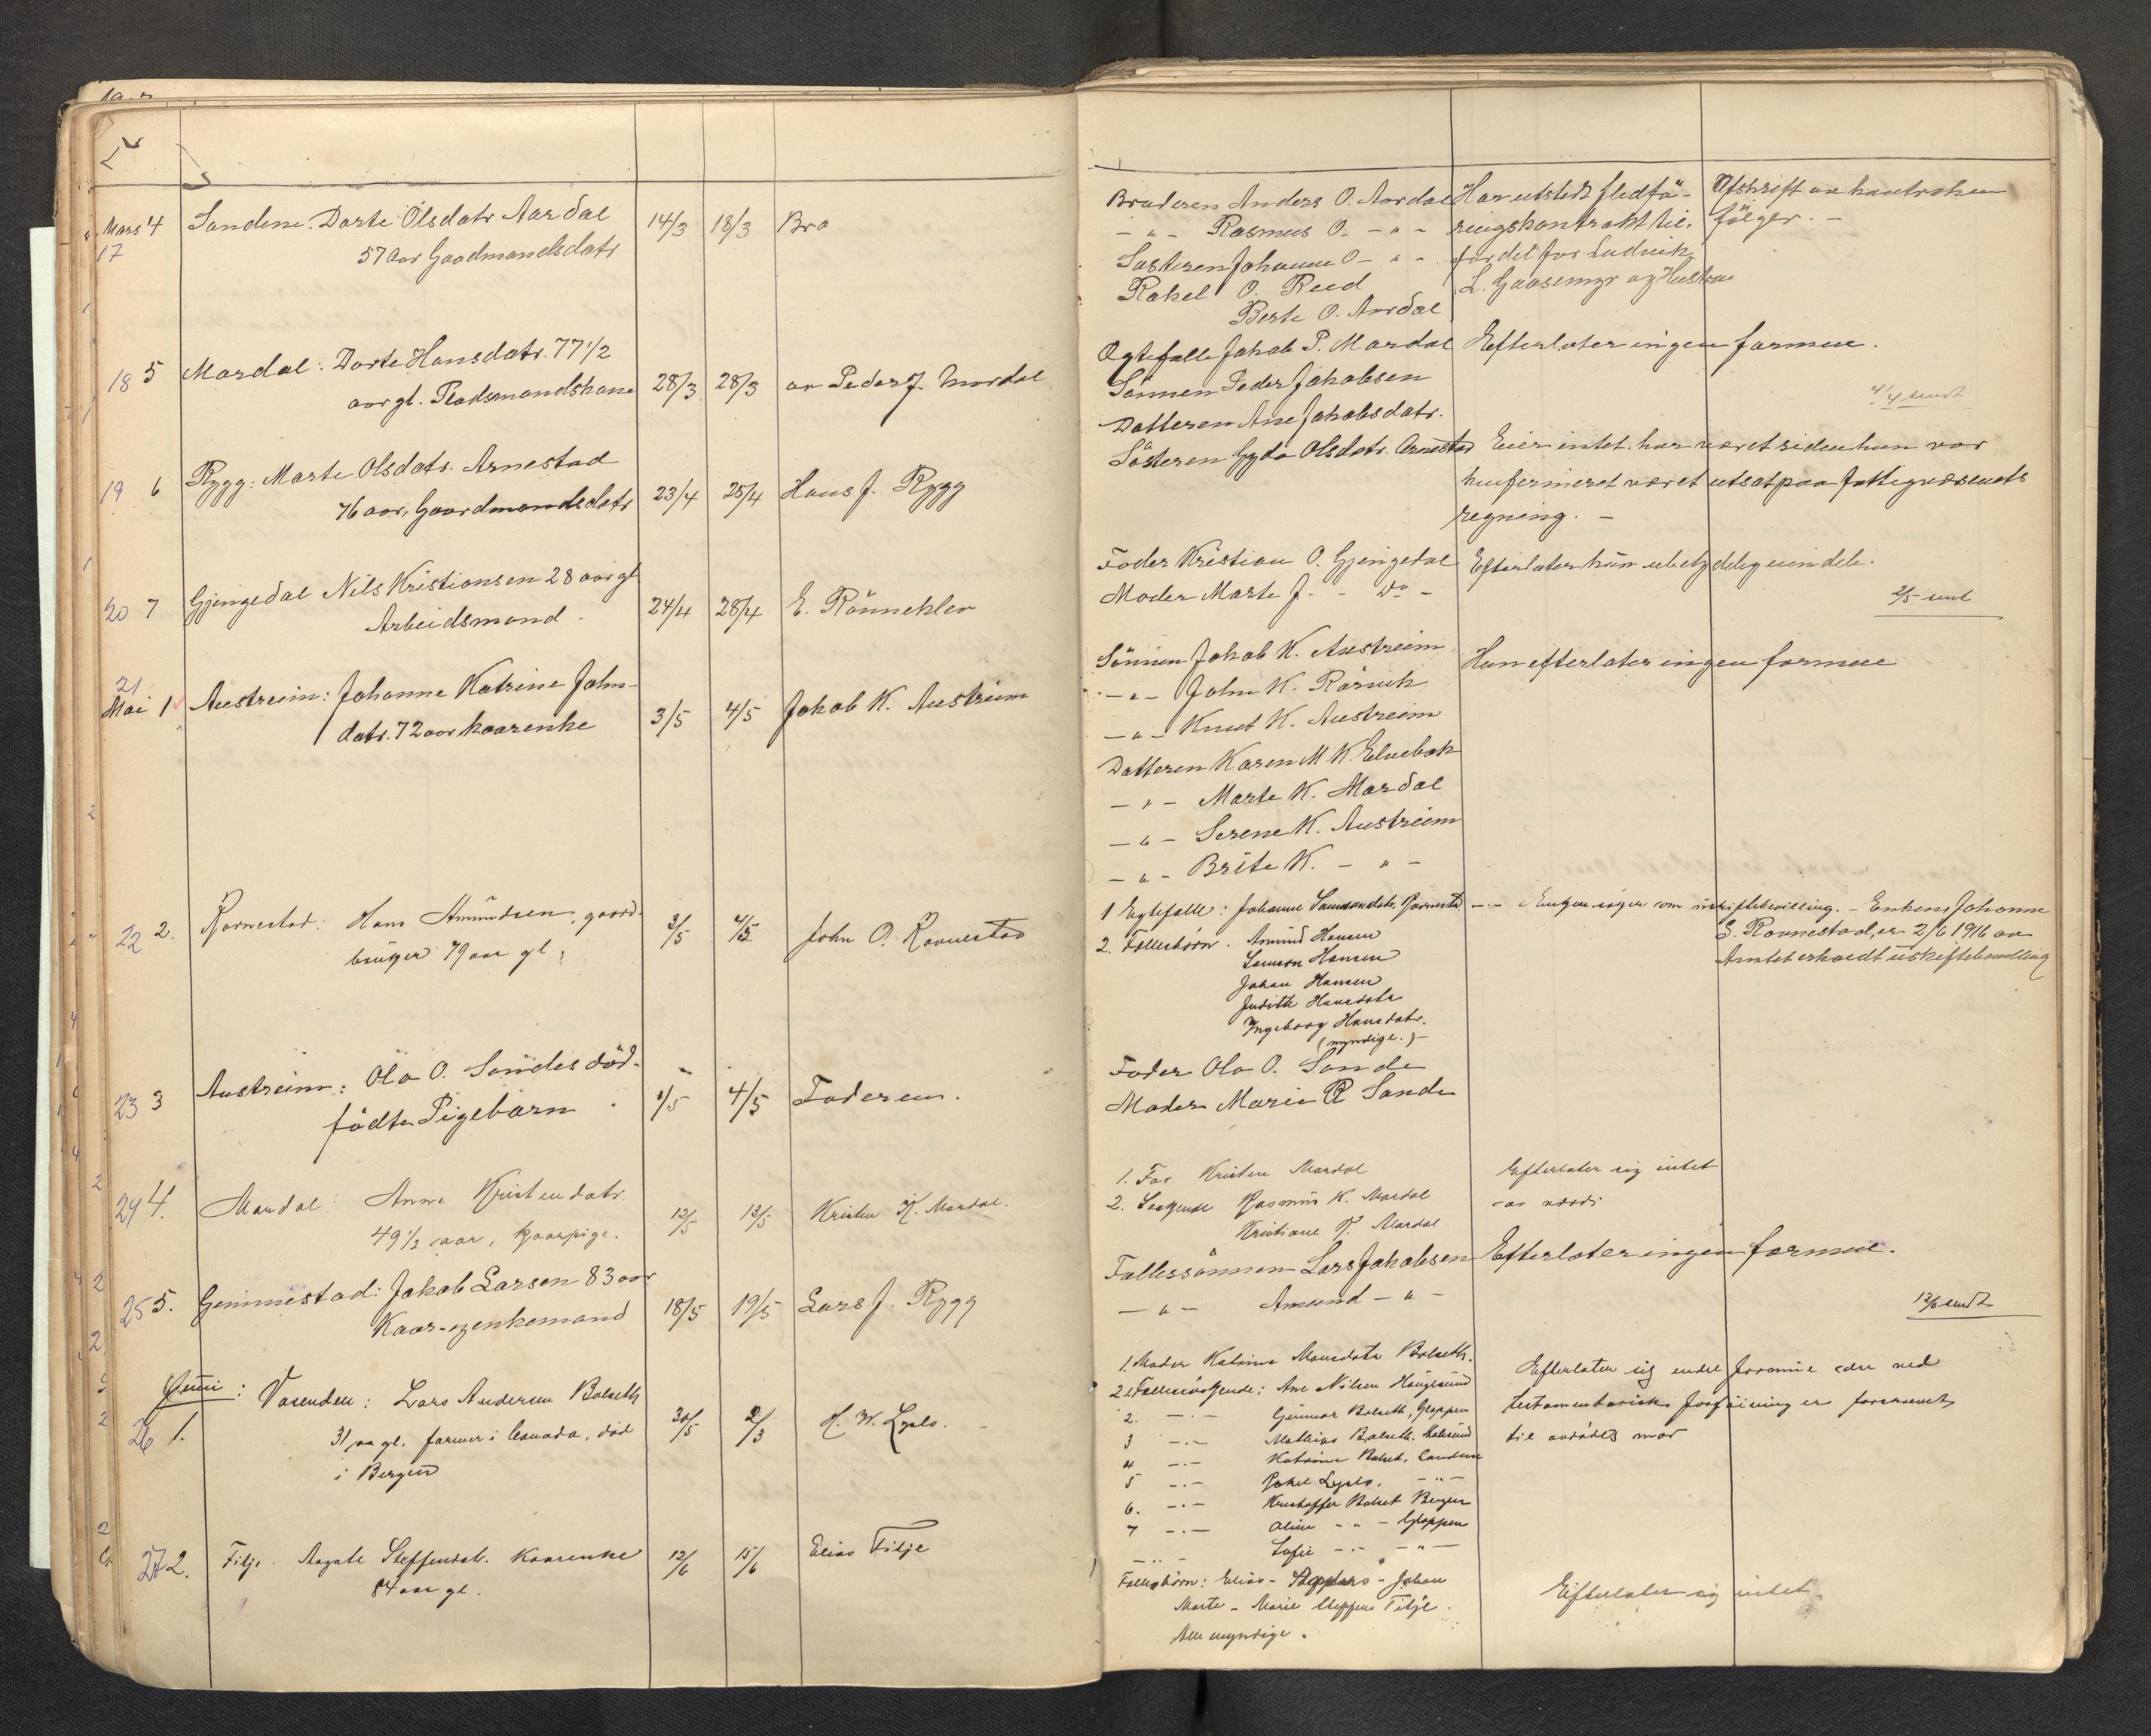 Mars 4 Sandene. Dorte Olsdatr Aardal 14/3 18/3 Bro
17 57 Aar Gaardmandsdatr
18 5 Mardal: Dorte Hansdatr. 77 1/2
aar gl. Pladsmandskone 28/3 28/3 av Peder J. Mardal
19 6 Rygg: Marte Olsdatr. Arnestad
76 aar, Gaardmandsdatr 23/4 25/4 Hans J. Rygg
20 7 Gjengedal Nils Kristiansen 28 aar gl
Arbeidsmand - 24/4 28/4 E. Rönnekleiv
21
Mai 1 Austreim: Johanne Katrine John-
datr. 72 aar kaarenke 3/5 4/5 Jakob K. Austreim
22 2. Ravnestad: Hans Amundsen, gaard-
bruger 79 aar gl; 3/5 4/5 John O. Ravnestad
23 3 Austreim: Ola O. Sandes död-
födte Pigebarn 1/5 4/5 Faderen.
24 4. Mardal: Anne Kristendatr.
49 1/2 aar, kaarpige. 12/5 13/5 Kristen K. Mardal.
25 5. Gimmestad: Jakob Larsen 83 aar
Kaar- og enkemand 18/5 19/5 Lars J. Rygg
Juni:
26 1. Vasenden: Lars Andersen Bolseth
31 aar gl. farmer i Canada, död 30/5 2/3 H. W. Lyslo. -
i Bergen
27 2. Fitje. Aagate Steffensdt. Kaarenke 12/6 15/6 Elias Fitje
84 aar gl.
Broderen Anders O. Aardal Har utstedt fledfö- Afskrift av kontrakten
- " - Rasmus O. - " - ringskontrakt til. følger. -
Søsteren Johanne O - " - fordel for Ludvik
Rakel O. Reed L. Gaasemyr og Hustru
Berte O. Aardal
Ægtefælle Jakob P. Mardal Efterlater ingen formue.
Sönnen Peder Jakobsen
Datteren Ane Jakobsdatr. 4/4 sendt
Sösteren Gyda Olsdatr. Arnestad Eier intet. har været siden hun var
konfirmeret været utsat paa Fattigvæsenets
regning. -
Fader Kristian O. Gjengedal Efterlater kun ubetydelig eiendele.
Moder Marte J. - Do - 2/5 sendt
Sönnen Jakob K. Austreim Hun efterlater ingen formue
- " - John K. Rørvik
- " - Knut K. Austreim
Datteren Karen M K. Elvebak
- " - Marte K. Mardal
- " - Serene K. Austreim
- " - Brite K. - " -
1 Egtefælle: Johanne Samsonsdatr. Ravnestad - Enken søger om uskiftebevilling. - Enken Johanne
2. Fællesbørn. Amund Hansen S. Ravnestad, er 2/6 1916 av
Samson Hansen Amtet erholdt uskiftebevilling
Johan Hansen
Judith Hansdatr
Ingeborg Hansdatr.
(myndige.) -
Fader Ola O. Sande
Moder Marie R Sande
1. Far Kristen Mardal Efterlater sig intet
2. Søskende Rasmus K. Mardal av værdi
Kristiane K. Mardal
Fællessönnen Lars Jakobsen Efterlater ingen formue.
- " - Amund - " - 12/6 sendt
1. Moder Katrine Monsdatr Bolseth. Efterlater sig endel formue som ved
2. Fællessøskende: Ane Nilsen Haugesund testamentarisk forføining er foræret
2. - " - Gunnar Bolseth, Gloppen til avdødes mor
3 - " - Mathias Bolseth.
4 - " - Katrine Bolset, Sandene
5 - " - Rakel Lyslo, - " -
6. - " - Kristoffer Bolset Bergen
7 - " - Oline - " - Gloppen
- " - Sofie - " - - " -
Fællesbørn: Elias - - Johan
Marte - Marie Steffens Fitje. Efterlater sig intet
Alle myndige.